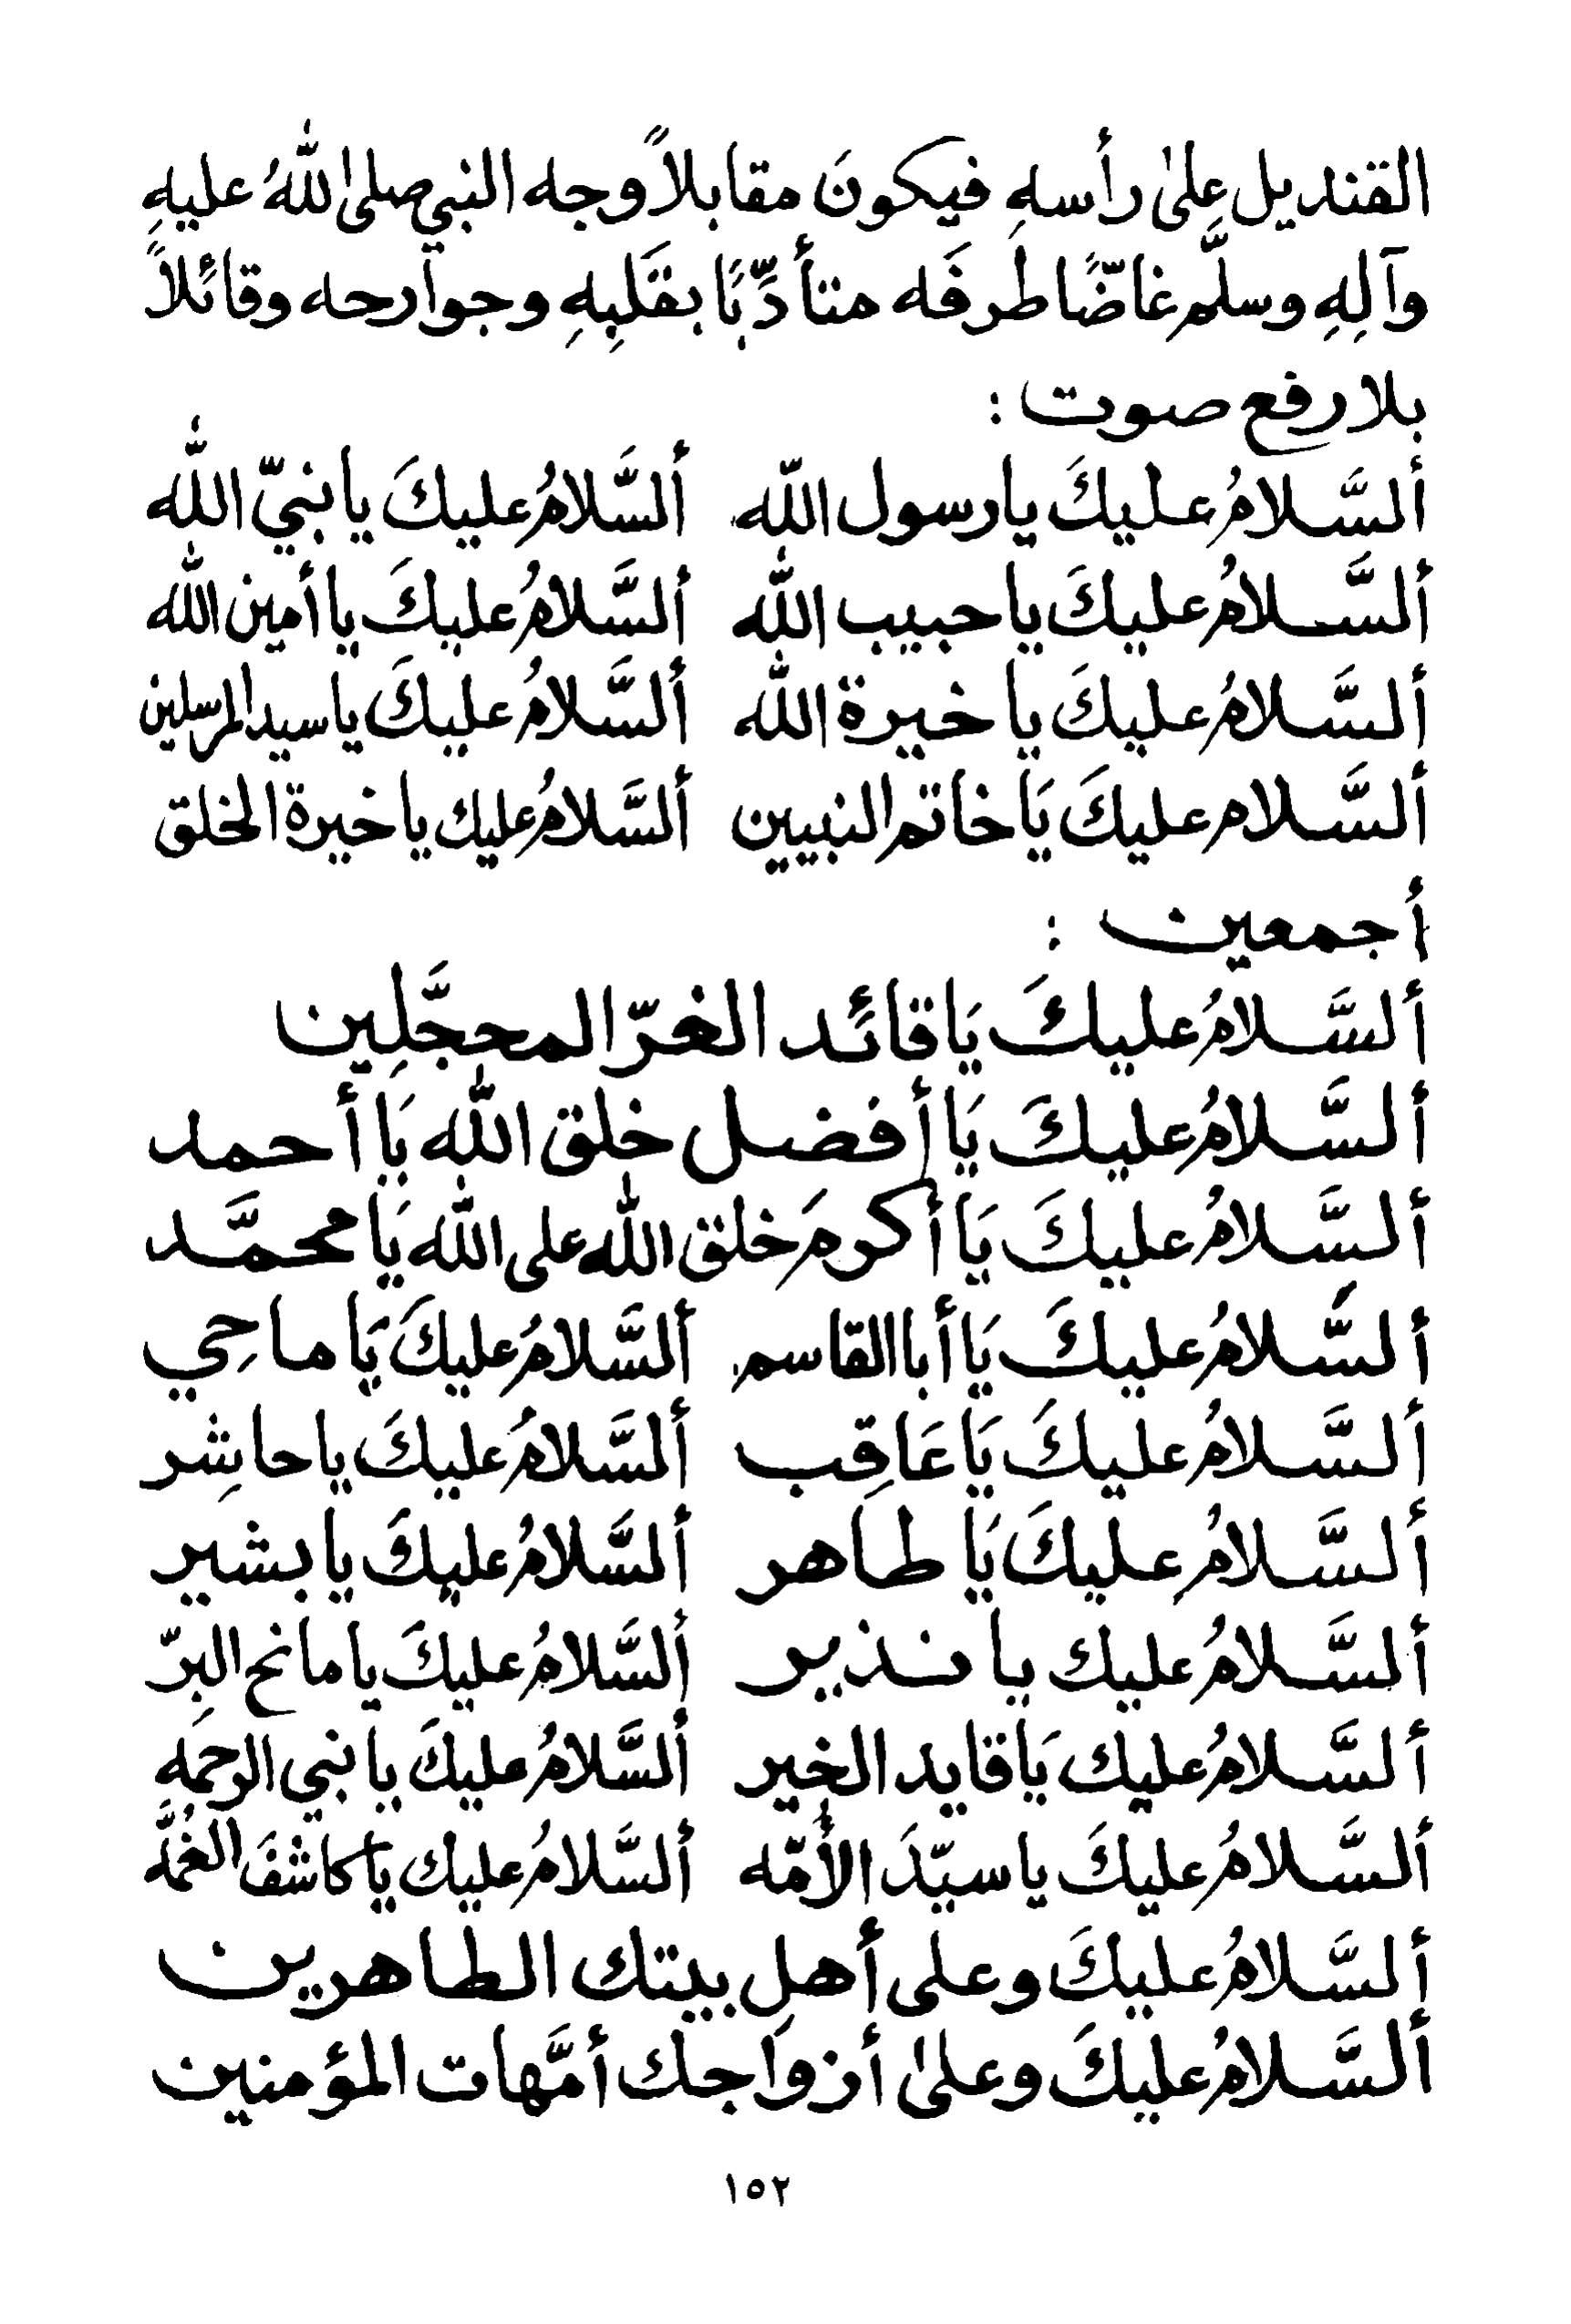 القنديل علىٰ رأسهِ فيكونَ مقابلاً وجه النبي صلى اللهُ عليهِ
وآلِهِ وسلَّم غاضًّا طرفَه متأدِّبًا بقَلبِهِ وجوارحه وقائلاً
بلا رفع صوت :
ألسَّلامُ عليكَ يا رسول اللّه ألسَّلامُ عليكَ يا نبيّ الله
ألسَّلامُ عليكَ يا حبيب الله ألسَّلامُ عليكَ يا أمين الله
ألسَّلامُ عليكَ يا خيرة الله ألسَّلامُ عليكَ يا سيد المرسلين
ألسَّلام عليكَ يَا خاتم النبيين ألسَّلامُ عليك يا خيرة الخلق
أجمعين :
ألسَّلامُ عليكَ يَا قائد الغرّ المحجَّلِين
ألسَّلامُ عليكَ يَا أفضل خلق الله يَا أحمد
ألسَّلامُ عليكَ يَا أكرمَ خلق الله على الله يَا محمَّد
ألسَّلامُ عليكَ يَا أبا القاسم ألسَّلامُ عليكَ يَا ماحِي
ألسَّلامُ عليكَ يَا عَاقِب ألسَّلامُ عليكَ يا حاشِر
ألسَّلامُ عليكَ يَا طاهر ألسَّلامُ عليكَ يا بشير
ألسَّلامُ عليك يا نذير ألسَّلامُ عليكَ يا مانح البِرّ
ألسَّلامُ عليك يَا قايد الخير ألسَّلامُ عليكَ يا نبي الرحمَه
ألسَّلامُ عليكَ يا سيّدَ الأُمّه ألسَّلامُ عليك يا كاشفَ الغُمَّه
ألسَّلامُ عليكَ وعلى أهل بيتك الطاهرين
ألسَّلامُ عليكَ وعلىٰ أزوَاجك أمَّهات المؤمنين
١٥٢